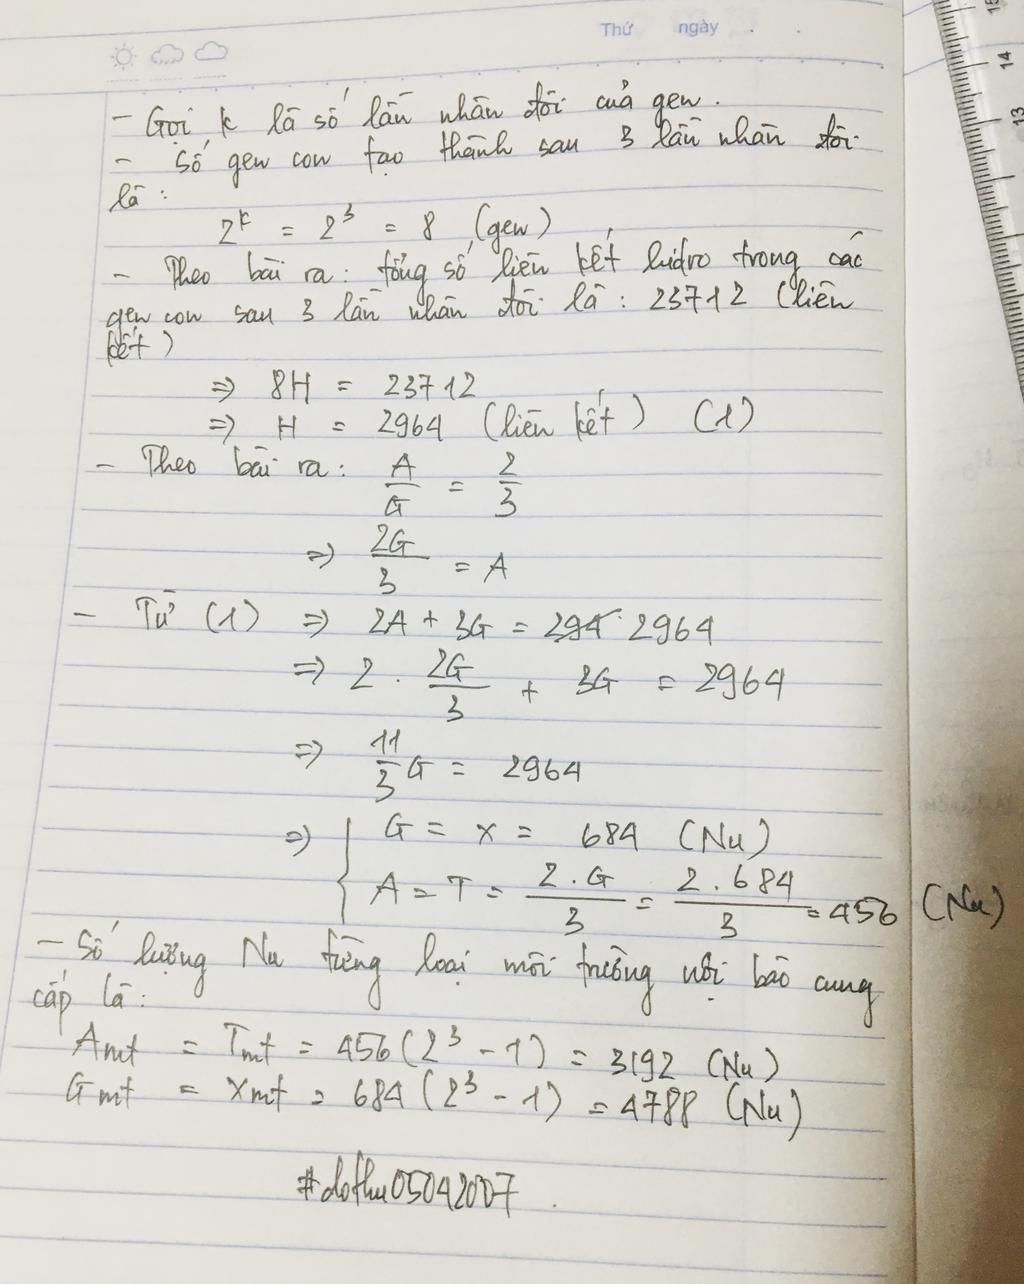 Thứ ngày
- Gọi k là số lần nhân đôi của gen.
- Số gen con tạo thành sau 3 lần nhân đôi
là:
2^k = 2^3 = 8 (gen)
- Theo bài ra: tổng số liên kết hidro trong các
gen con sau 3 lần nhân đôi là: 23712 (liên
kết)
=> 8H = 23712
=> H = 2964 (liên kết) (1)
- Theo bài ra: A/G = 2/3
=> 2G/3 = A
- Từ (1) => 2A + 3G = 294 2964
=> 2 . 2G/3 + 3G = 2964
=> 11/3 G = 2964
=> { G = X = 684 (Nu)
A = T = 2.G/3 = 2.684/3 = 456 (Nu)
- Số lượng Nu từng loại môi trường nội bào cung
cấp là:
Amt = Tmt = 456(2^3 - 1) = 3192 (Nu)
Gmt = Xmt = 684(2^3 - 1) = 4788 (Nu)
#dothu05042007
15
14
13